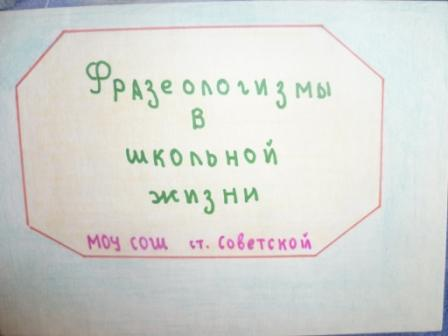 Фразеологизмы
в
школьной
жизни
МОУ СОШ ст. Советской